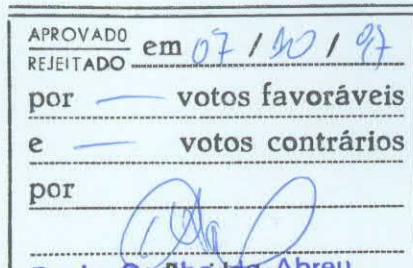 APROVADO
REJEITADO em 07 / 10 / 97
por — votos favoráveis
e — votos contrários
por
Abreu